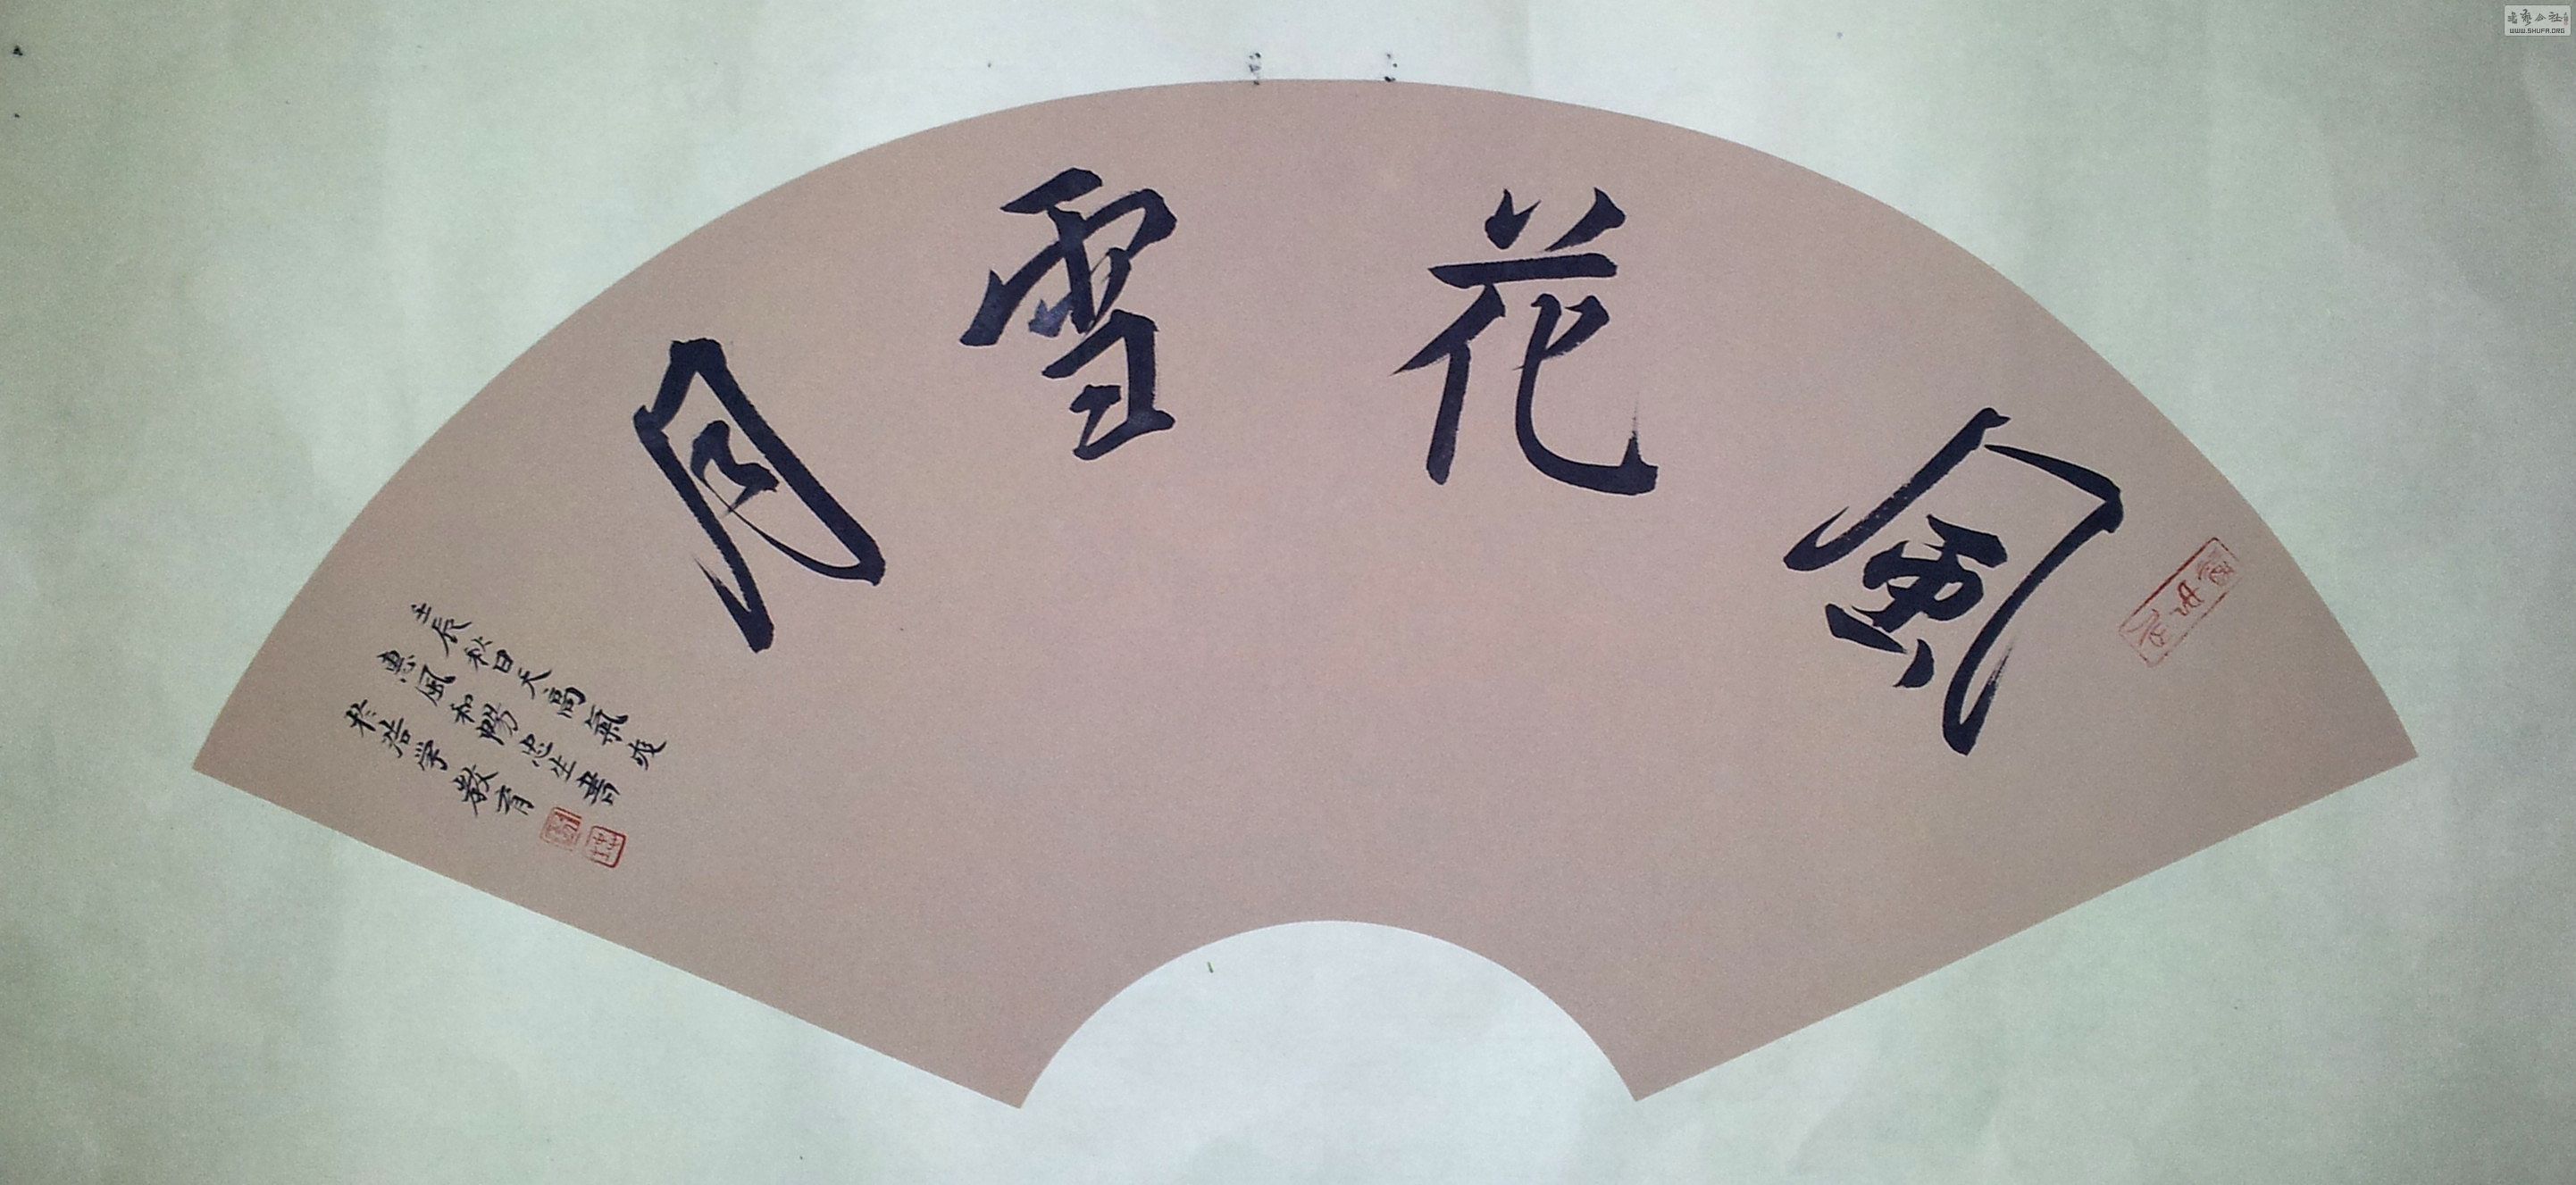 風花雪月
壬辰秋日天高氣爽
惠風和暢忠生書
於浩学教育
書藝公社
WWW.SHUFA.ORG